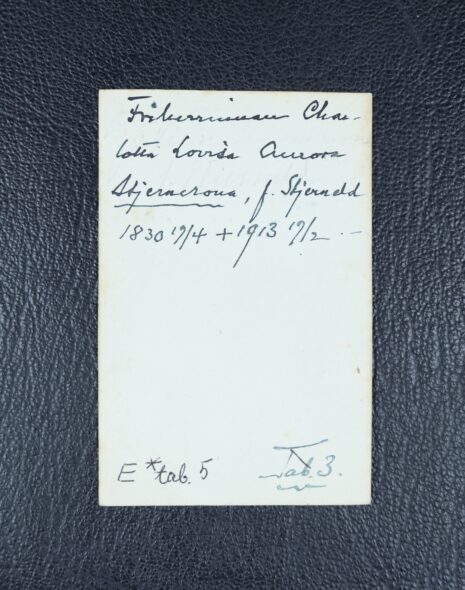 Friherrinnan Char-
lotta Lovisa Aurora
Stjerncrona, f. Stjerneld
1830 19/4 + 1913 19/2 -
E *tab. 5
Tab. 3.